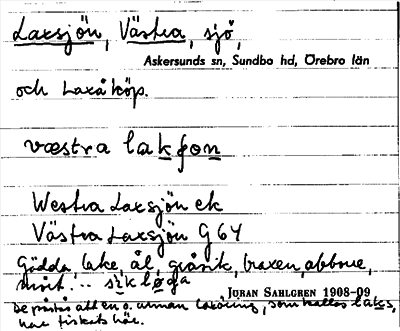 Laxsjön, Västra, sjö,
Askersunds sn, Sundbo hd, Örebro län
och Laxå köp.
væstra lakʃon
Westra Laxsjön ek
Västra Laxsjön G 64
Gädda, lake, ål, gråsik, braxen, abborre,
mört...
JÖRAN SAHLGREN 1908–09
De påstås att en o. annan laxöring, som kallas
har fiskats här.